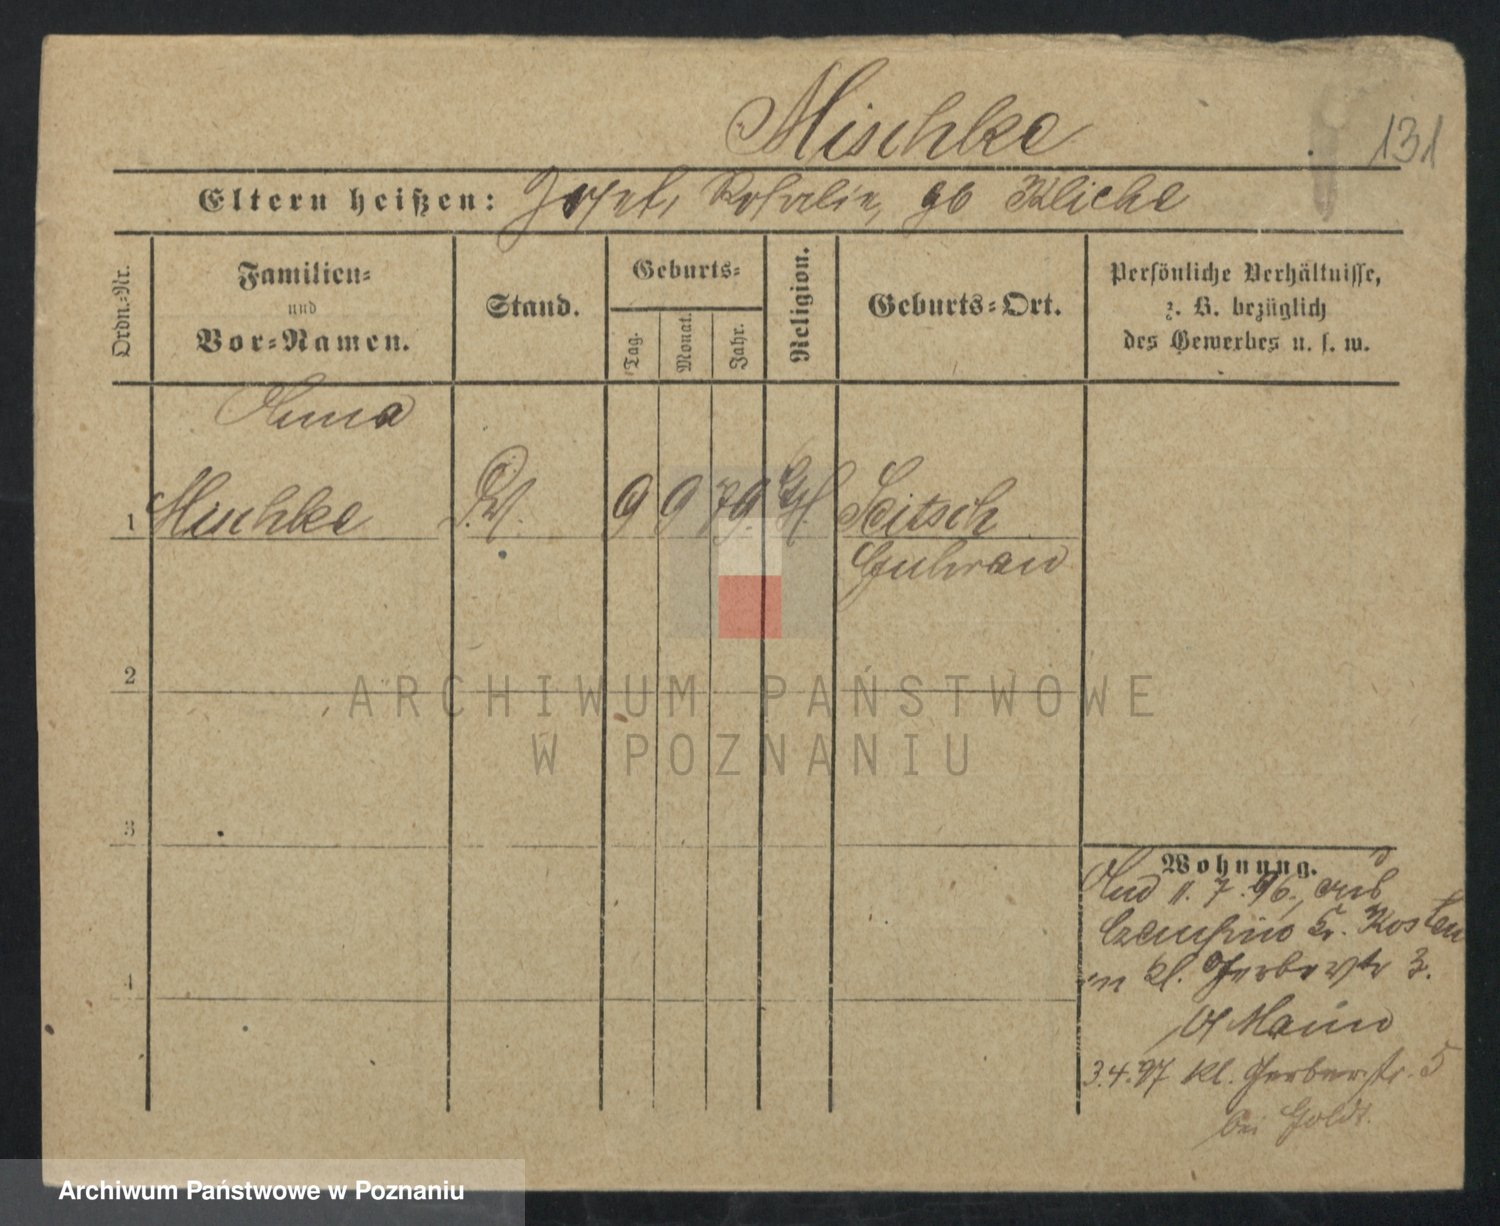 Mischke
131
Eltern heißen: Josef, Rosalie, gb Kliche
Ordn.-Nr.
Familien-
und
Vor-Namen.
Stand.
Geburts-
Tag.
Monat.
Jahr.
Religion.
Geburts-Ort.
Persönliche Verhältnisse,
z. B. bezüglich
des Gewerbes u. s. w.
Anna
1 Mischke 9 9 79 Seitsch
Guhrau
2
3
4
Wohnung.
11. 7. 96, aus
Kr. Kosten
kl. Gerberstr 3.
3.4.97 kl. Gerberstr. 5
bei Goldt.
ARCHIWUM PAŃSTWOWE
W POZNANIU
Archiwum Państwowe w Poznaniu